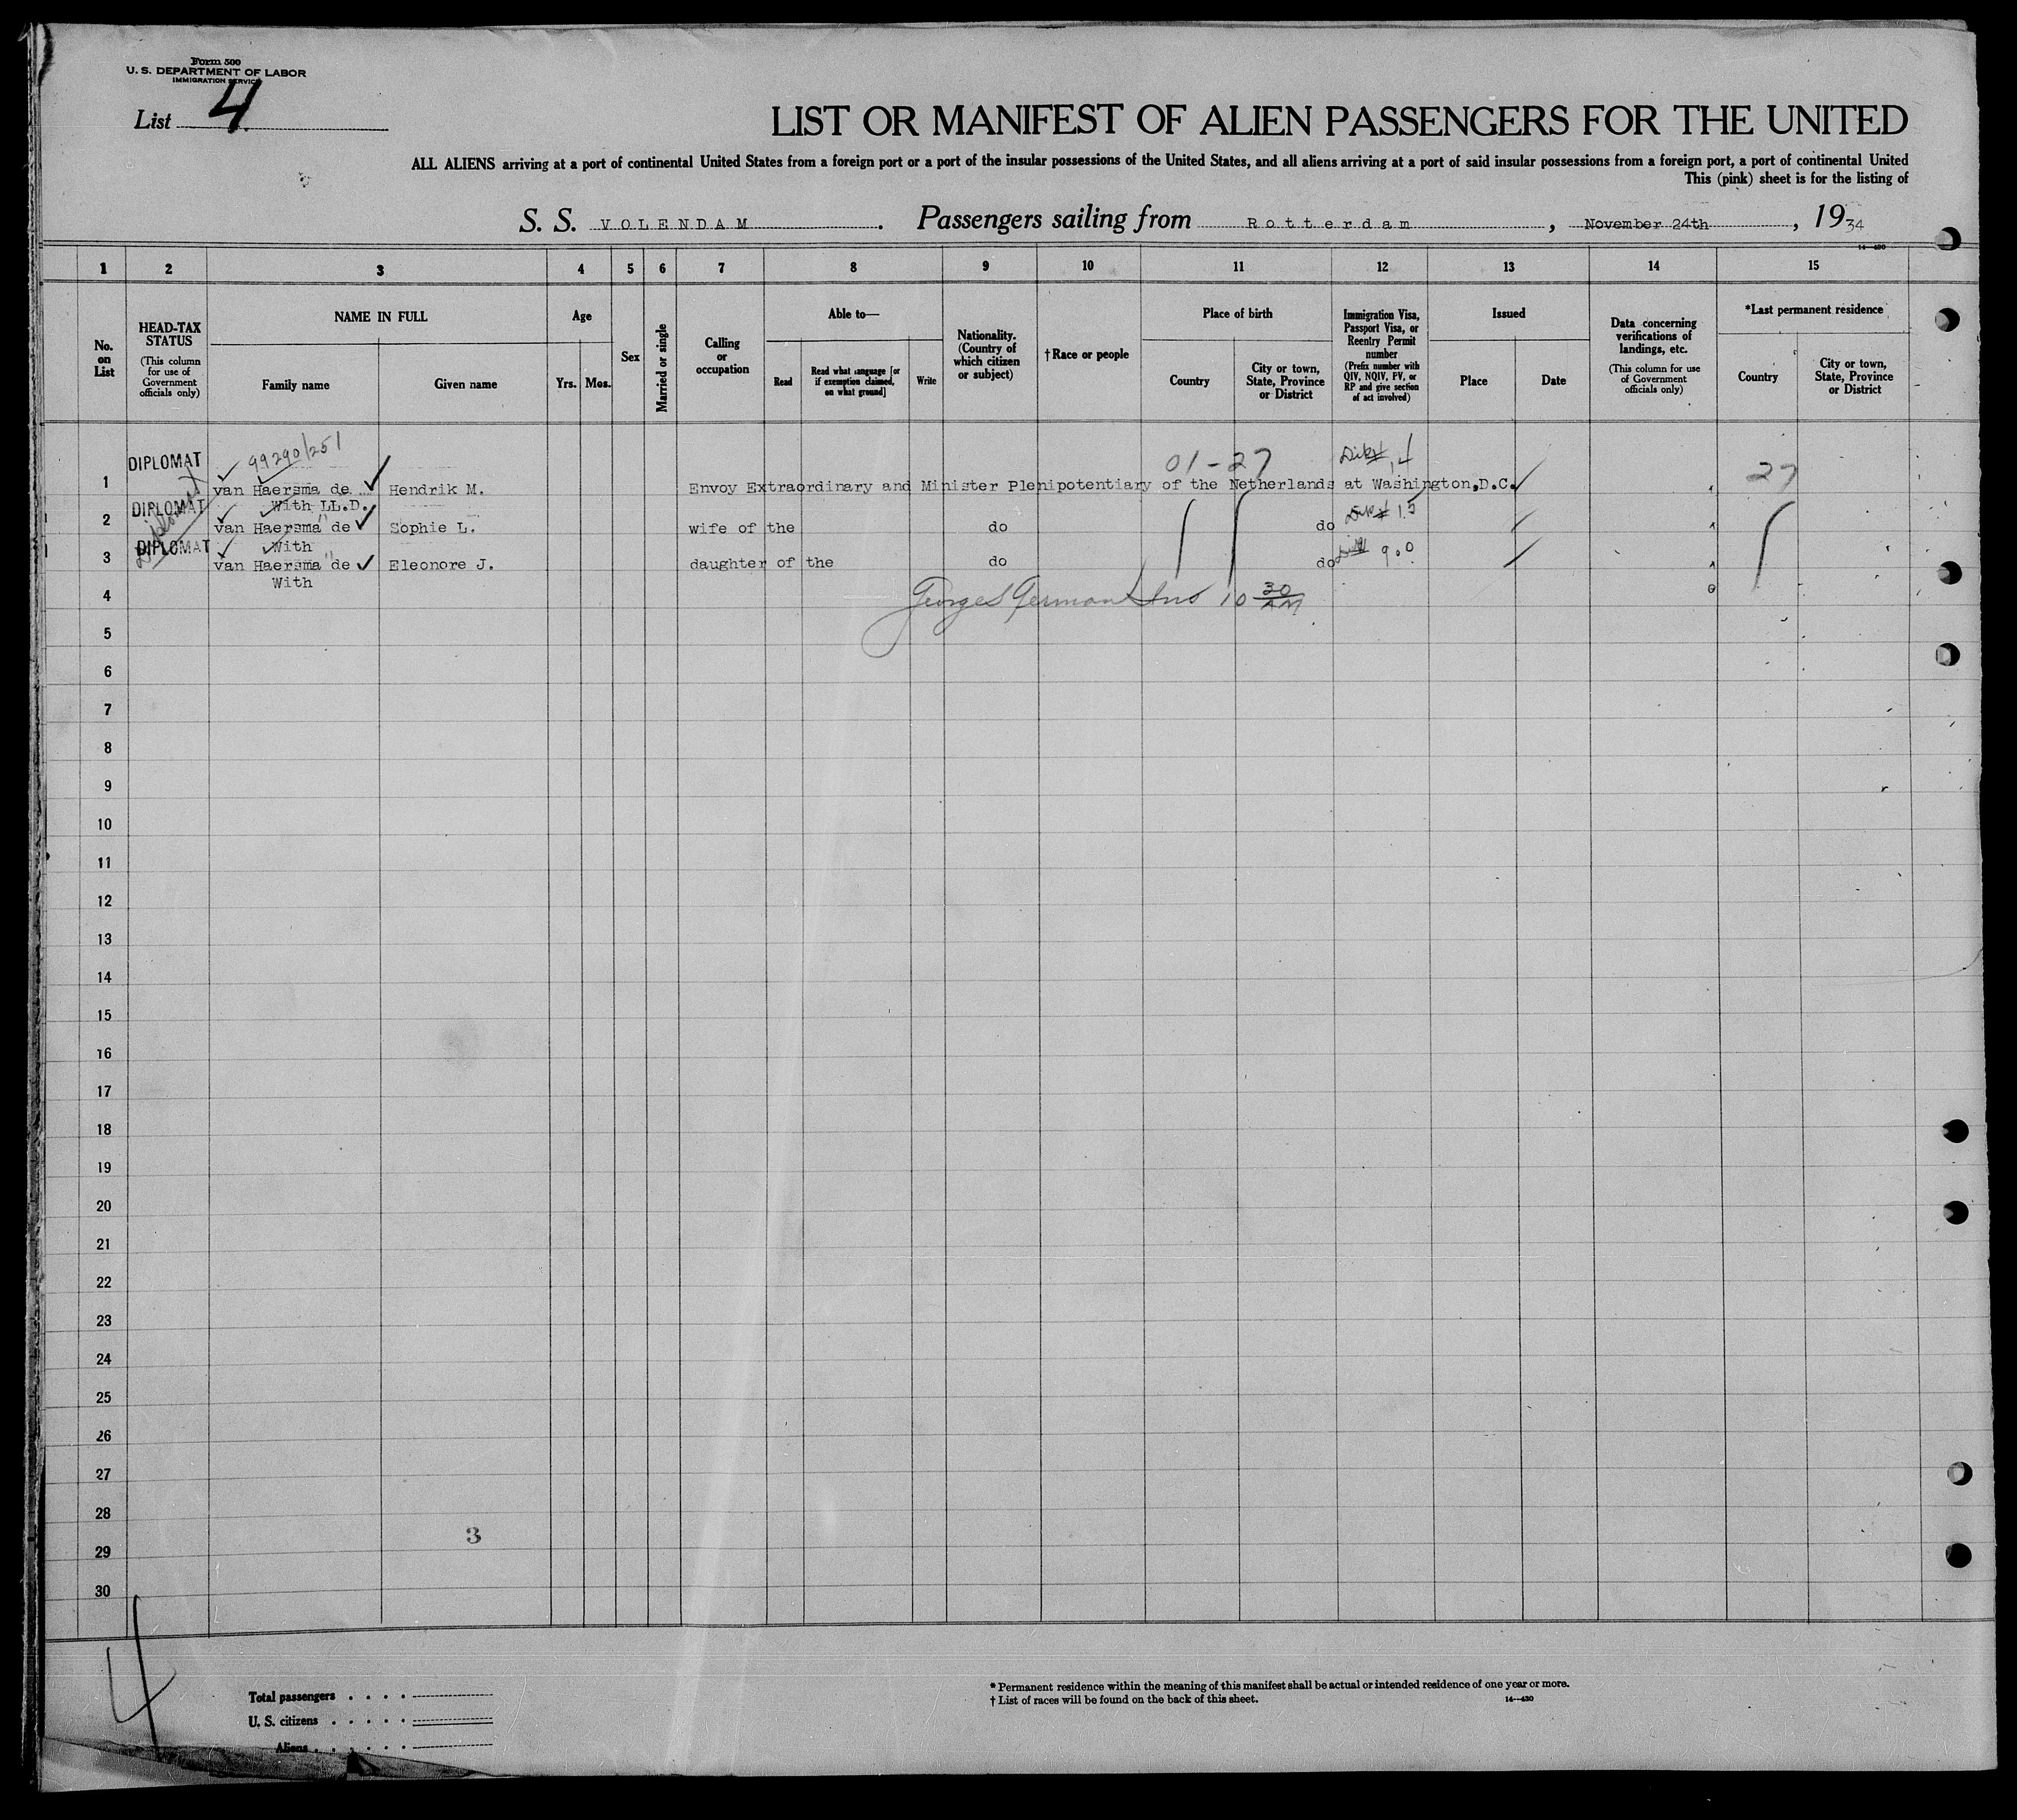 Form 500
U. S. DEPARTMENT OF LABOR
IMMIGRATION SERVICE
List 4
LIST OR MANIFEST OF ALIEN PASSENGERS FOR THE UNITED
ALL ALIENS arriving at a port of continental United States from a foreign port or a port of the insular possessions of the United States, and all aliens arriving at a port of said insular possessions from a foreign port, a port of continental United
This (pink) sheet is for the listing of
S. S. VOLENDAM. Passengers sailing from Rotterdam, November 24th, 1934
14—430
1 2 3 4 5 6 7 8 9 10 11 12 13 14 15
No. on List
HEAD-TAX STATUS
(This column for use of Government officials only)
NAME IN FULL
Family name
Given name
Age
Yrs. Mos.
Sex
Married or single
Calling or occupation
Able to—
Read
Read what language [or if exemption claimed, on what ground]
Write
Nationality. (Country of which citizen or subject)
† Race or people
Place of birth
Country
City or town, State, Province or District
Immigration Visa, Passport Visa, or Reentry Permit number
(Prefix number with QIV, NQIV, PV, or RP and give section of act involved)
Issued
Place
Date
Data concerning verifications of landings, etc.
(This column for use of Government officials only)
*Last permanent residence
Country
City or town, State, Province or District
99290/251
01-27
27
DIPLOMAT
1 van Haersma de Hendrik M. Envoy Extraordinary and Minister Plenipotentiary of the Netherlands at Washington,D.C.
With LL.D.
DIPLOMAT
Diplomat
2 van Haersma de Sophie L. wife of the do do
With
DIPLOMAT
3 van Haersma de Eleonore J. daughter of the do do
With
4 George S German Ins 10 30 AM
5
6
7
8
9
10
11
12
13
14
15
16
17
18
19
20
21
22
23
24
25
26
27
28
3
29
30
4
Total passengers . . . .
U. S. citizens . . . . .
Aliens . . . . . .
* Permanent residence within the meaning of this manifest shall be actual or intended residence of one year or more.
† List of races will be found on the back of this sheet.
14—430